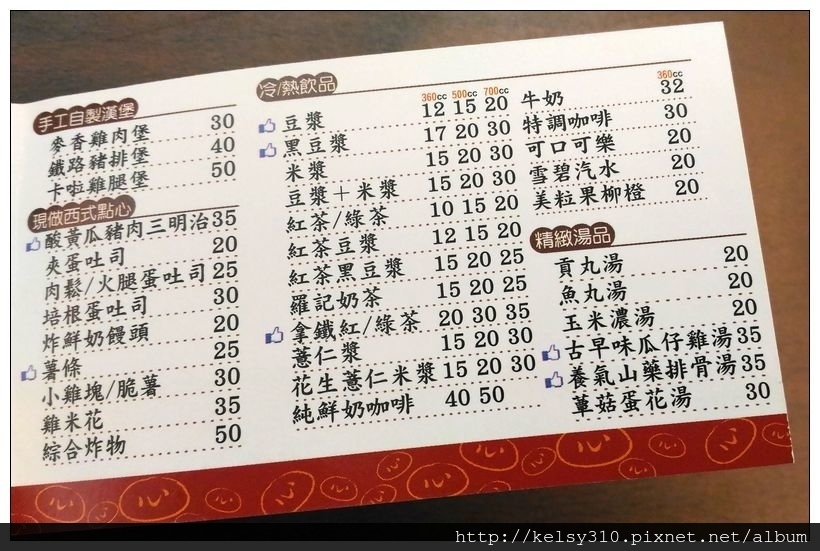 手工自製漢堡
麥香雞肉堡 30
鐵路豬排堡 40
卡啦雞腿堡 50
現做西式點心
酸黃瓜豬肉三明治 35
夾蛋吐司 20
肉鬆/火腿蛋吐司 25
培根蛋吐司 30
炸鮮奶饅頭 20
薯條 25
小雞塊/脆薯 30
雞米花 35
綜合炸物 50
冷/熱飲品
360cc 500cc 700cc
豆漿 12 15 20
黑豆漿 17 20 30
米漿 15 20 30
豆漿＋米漿 15 20 30
紅茶/綠茶 10 15 20
紅茶豆漿 12 15 20
紅茶黑豆漿 15 20 25
羅記奶茶 15 20 25
拿鐵紅/綠茶 20 30 35
薏仁漿 15 20 30
花生薏仁米漿 15 20 30
純鮮奶咖啡 40 50
360cc
牛奶 32
特調咖啡 30
可口可樂 20
雪碧汽水 20
美粒果柳橙 20
精緻湯品
貢丸湯 20
魚丸湯 20
玉米濃湯 20
古早味瓜仔雞湯 35
養氣山藥排骨湯 35
蕈菇蛋花湯 30
心 心 心 心 心 心 心 心 心
http://kelsy310.pixnet.net/album